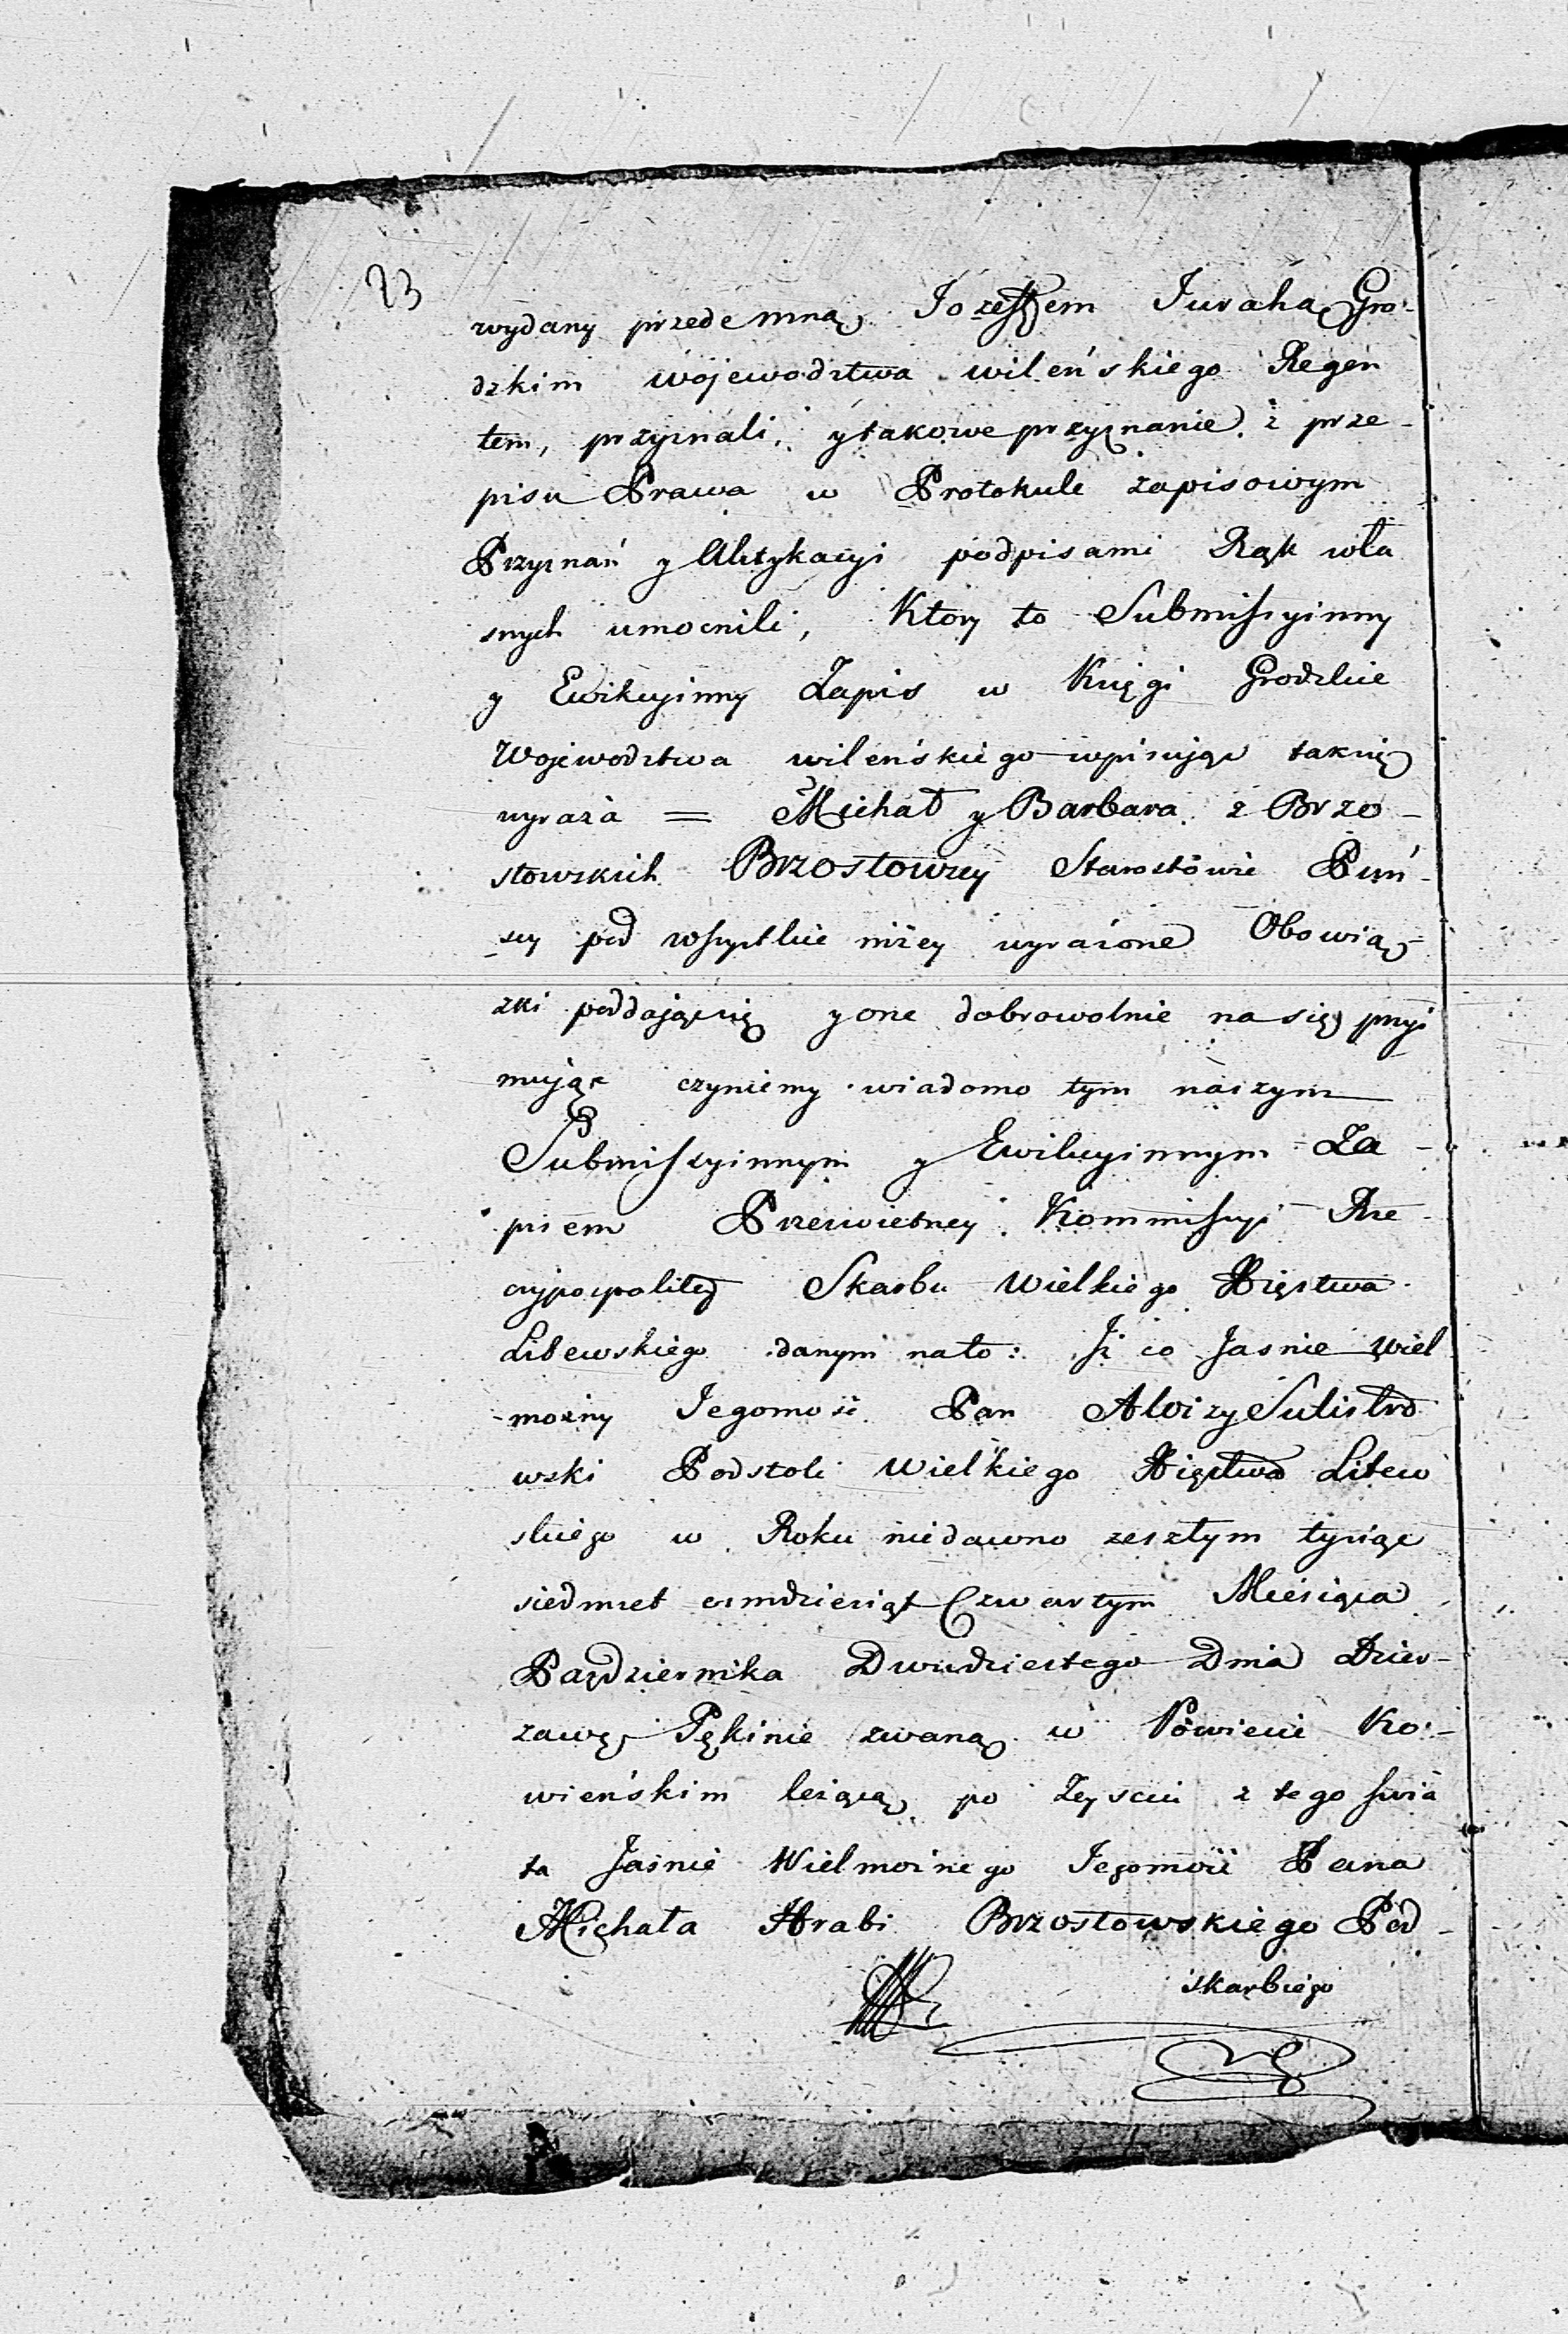 23
wydany przedemną Jozeffem Jurahą Gro-
dzkim wojewodztwa wileńskiego Regen
tem, przyznali, y takowe przyznanie z prze-
pisu Prawa w Protokule zapisowym
Przyznań y Aktykacyi podpisami Rąk wła
snych umocnili, Ktory to Submissyinny
y Ewikcyinny Zapis w Księgi Grodzkie
Wojewodztwa wileńskiego wpisując tak się
wyraża = Michał y Barbara z Brzo-
stowskich Brzostowscy Starostowie Puń-
scy pod wszystkie niżey wyrażone Obowią-
zki poddając się y one dobrowolnie na się przyi
mując czyniemy wiadomo tym naszym
Submissyinnym y Ewikcyinnym Za-
pisem Prześwietney Kommissyi Rze-
czypospolitey Skarbu Wielkiego Xięstwa
Litewskiego danym na to: Iż co Jasnie Wiel
możny Jegomość Pan Aloizy Sulistro
wski Podstoli Wielkiego Xięstwa Litew
skiego w Roku niedawno zeszłym tysiąc
siedmset osmdziesiąt Czwartym Miesiąca
Pazdziernika Dwudziestego Dnia Dzier-
zawę Pękinie zwaną w Powiecie Ko-
wieńskim leżącą po Zeysciu z tego swia
ta Jaśnie Wielmożnego Jegomości Pana
Michała Hrabi Brzostowskiego Pod-
skarbiego